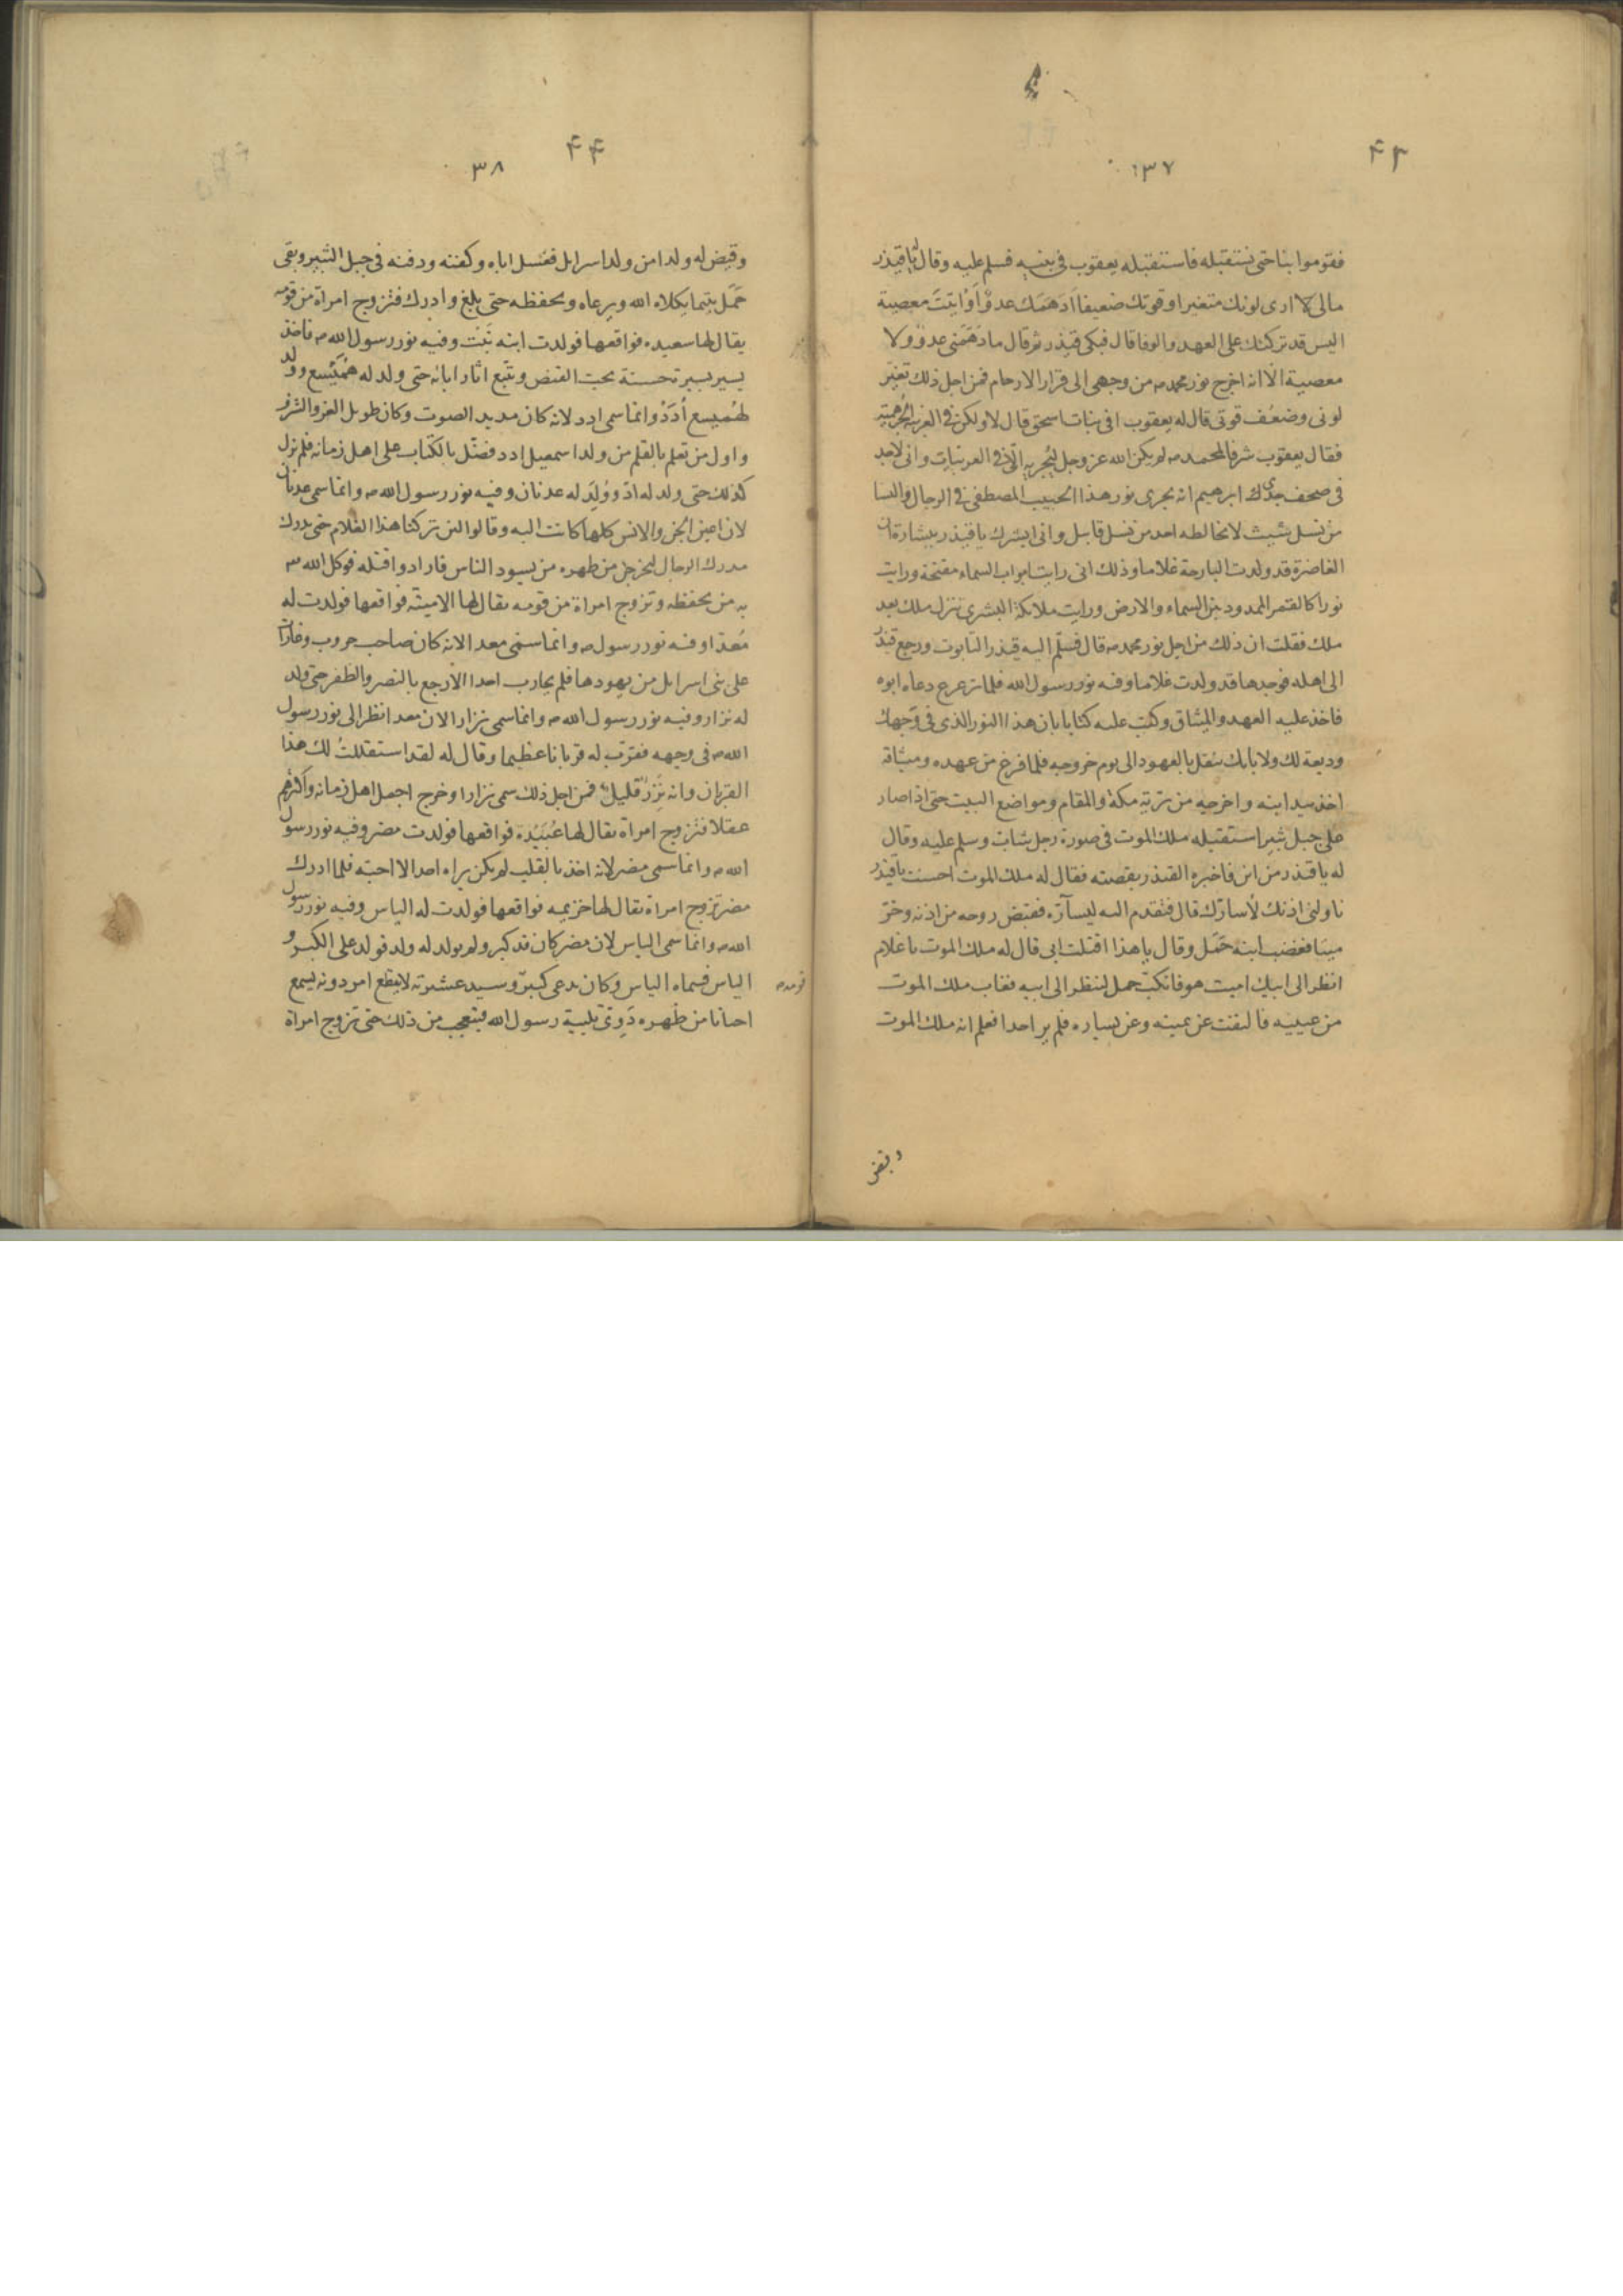 ۴۳
۱۳۷
فقوموا بنا حتى نستقبله فاستقبله يعقوب فى بنيه فسلم عليه وقال يا قيذر
مالى لا ارى لونك متغيرا وقوتك ضعيفا ادهمك عدوٌ اَوْ اتيتَ معصية
اليس قد تركتك على العهد والوفا قال فبكى قيذر ثم قال ما دهمنى عدوٌ ولا
معصية الا انه اخرج نور محمد ص من وجهى الى قرار الارحام فمن اجل ذلك تغير
لونى وضعُف قوتى قال له يعقوب افى بنات اسحق قال لا ولكن فى العربية الجُرهمية
فقال يعقوب شرفا لمحمد ص لم يكن الله عز وجل ليُجريه الّا فى العربيات وانى لاجد
فى صحف جدى ابرهيم انه يجرى نور هذا الحبيب المصطفى فى الرجال والنسا
من نسل شيث لا يخالطه احد من نسل قابيل وانى ابشرك يا قيذر ببشارة ان
الغاضرة قد ولدت البارحة غلاما وذلك انى رايت ابواب السماء مفتحة ورايت
نورا كالقمر الممدود بين السماء والارض ورايت ملائكة البشرى تنزل ملك بعد
ملك فقلت ان ذلك من اجل نور محمد ص قال فسلّم اليه قيذر التابوت ورجع قيذر
الى اهله فوجدها قد ولدت غلاما وفيه نور رسول الله فلما ترعرع دعاه ابوه
فاخذ عليه العهد والميثاق وكتب عليه كتابا بان هذا النور الذى فى وجهك
وديعة لك ولابايك ينقل بالعهود الى يوم خروجه فلما فرغ من عهده وميثاقه
اخذ بيد ابنه واخرجه من تربة مكة والمقام ومواضع البيت حتى اذا صار
على جبل ثبير استقبله ملك الموت فى صورة رجل شاب وسلم عليه وقال
له يا قيذر من اين فاخبره القيذر بقصته فقال له ملك الموت احسنت يا قيذر
ناولنى اذنك لاُسارّك قال فتقدم اليه ليسارّه فقبض روحه من اذنه وخرّ
ميتا فغضب ابنه حَمَل وقال يا هذا اقتلت ابى قال له ملك الموت يا غلام
انظر الى ابيك اميت هو فانكبّ حمل لينظر الى ابيه فغاب ملك الموت
من عينيه فالتفت عن يمينه وعن يساره فلم ير احدا فعلم انه ملك الموت
وقيض
۴۴
۳۸
وقيض له ولدا من ولد اسرايل فغسل اباه وكفنه ودفنه فى جبل الثبير وبقى
حَمَل يتيما يكلاه الله ويرعاه ويحفظه حتى بلغ وادرك فتزوج امراة من قومه
يقال لها سعيده فواقعها فولدت ابنه نَبْت وفيه نور رسول الله ص فاخذ
يسير بسيرة حسنة يحب القنص ويتبع اثار ابائه حتى ولد له هُمَيْسع وولد
لهُميسع اُدَدُ وانما سمى ادد لانه كان مديد الصوت وكان طويل العز والشرف
واول من تعلم بالقلم من ولد اسمعيل ادد فضّل بالكتاب على اهل زمانه فلم يزل
كذلك حتى ولد له ادّ ووُلِدَ له عدنان وفيه نور رسول الله ص وانما سمى عدنان
لان اعين الجن والانس كلها كانت اليه وقالوا لئن تركنا هذا الغلام حتى يدرك
مدرك الرجال ليخرجن من ظهره من يسود الناس فارادوا قتله فوكل الله
به من يحفظه وتزوج امراة من قومه يقال لها الامينة فواقعها فولدت له
مُعدّا وفيه نور رسول ص وانما سمّى معد لانه كان صاحب حروب وغارات
على بنى اسرايل من يهودها فلم يحارب احدا الا رجع بالنصر والظفر حتى ولد
له نزار وفيه نور رسول الله ص وانما سمى نزار الان معد انظر الى نور رسول
الله ص فى وجهه فقرّب له قربانا عظيما وقال له لقد استقللتُ لك هذا
القربان وانه نَزِرٌ قليل فمن اجل ذلك سمى نزارا وخرج اجمل اهل زمانه واكثرهم
عقلا فتزوج امراة يقال لها عُبَيْدة فواقعها فولدت مضر وفيه نور رسول
الله ص وانما سمى مضر لانه اخذ بالقلب لم يكن يراه احد الا احبّه فلما ادرك
مضر تزوج امراة يقال لها خزيمه فواقعها فولدت له الياس وفيه نور رسول
الله ص وانما سمى الياس لان مضر كان قد كبر ولم يولد له ولد فولد على الكبر و
الياس فسماه الياس وكان يدعى كبيرَ وسيد عشيرته لا يقطع امر دونه يسمع
احيانا من ظهره دَوِىّ تلبية رسول الله فيتعجب من ذلك حتى تزوج امراة